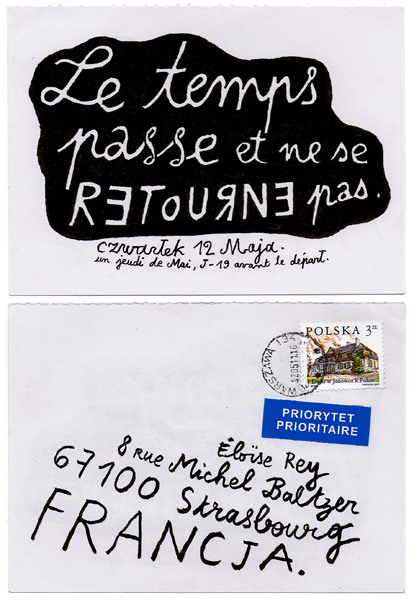 Le temps
passe et ne se
RETOURNE pas.
czwartek 12 Maja.
un jeudi de Mai, J-19 avant le départ.
POLSKA 3 ZŁ
WARSZAWA
PRIORYTET
PRIORITAIRE
Éloïse Rey
8 rue Michel Baltzer
67100 Strasbourg
FRANCJA.